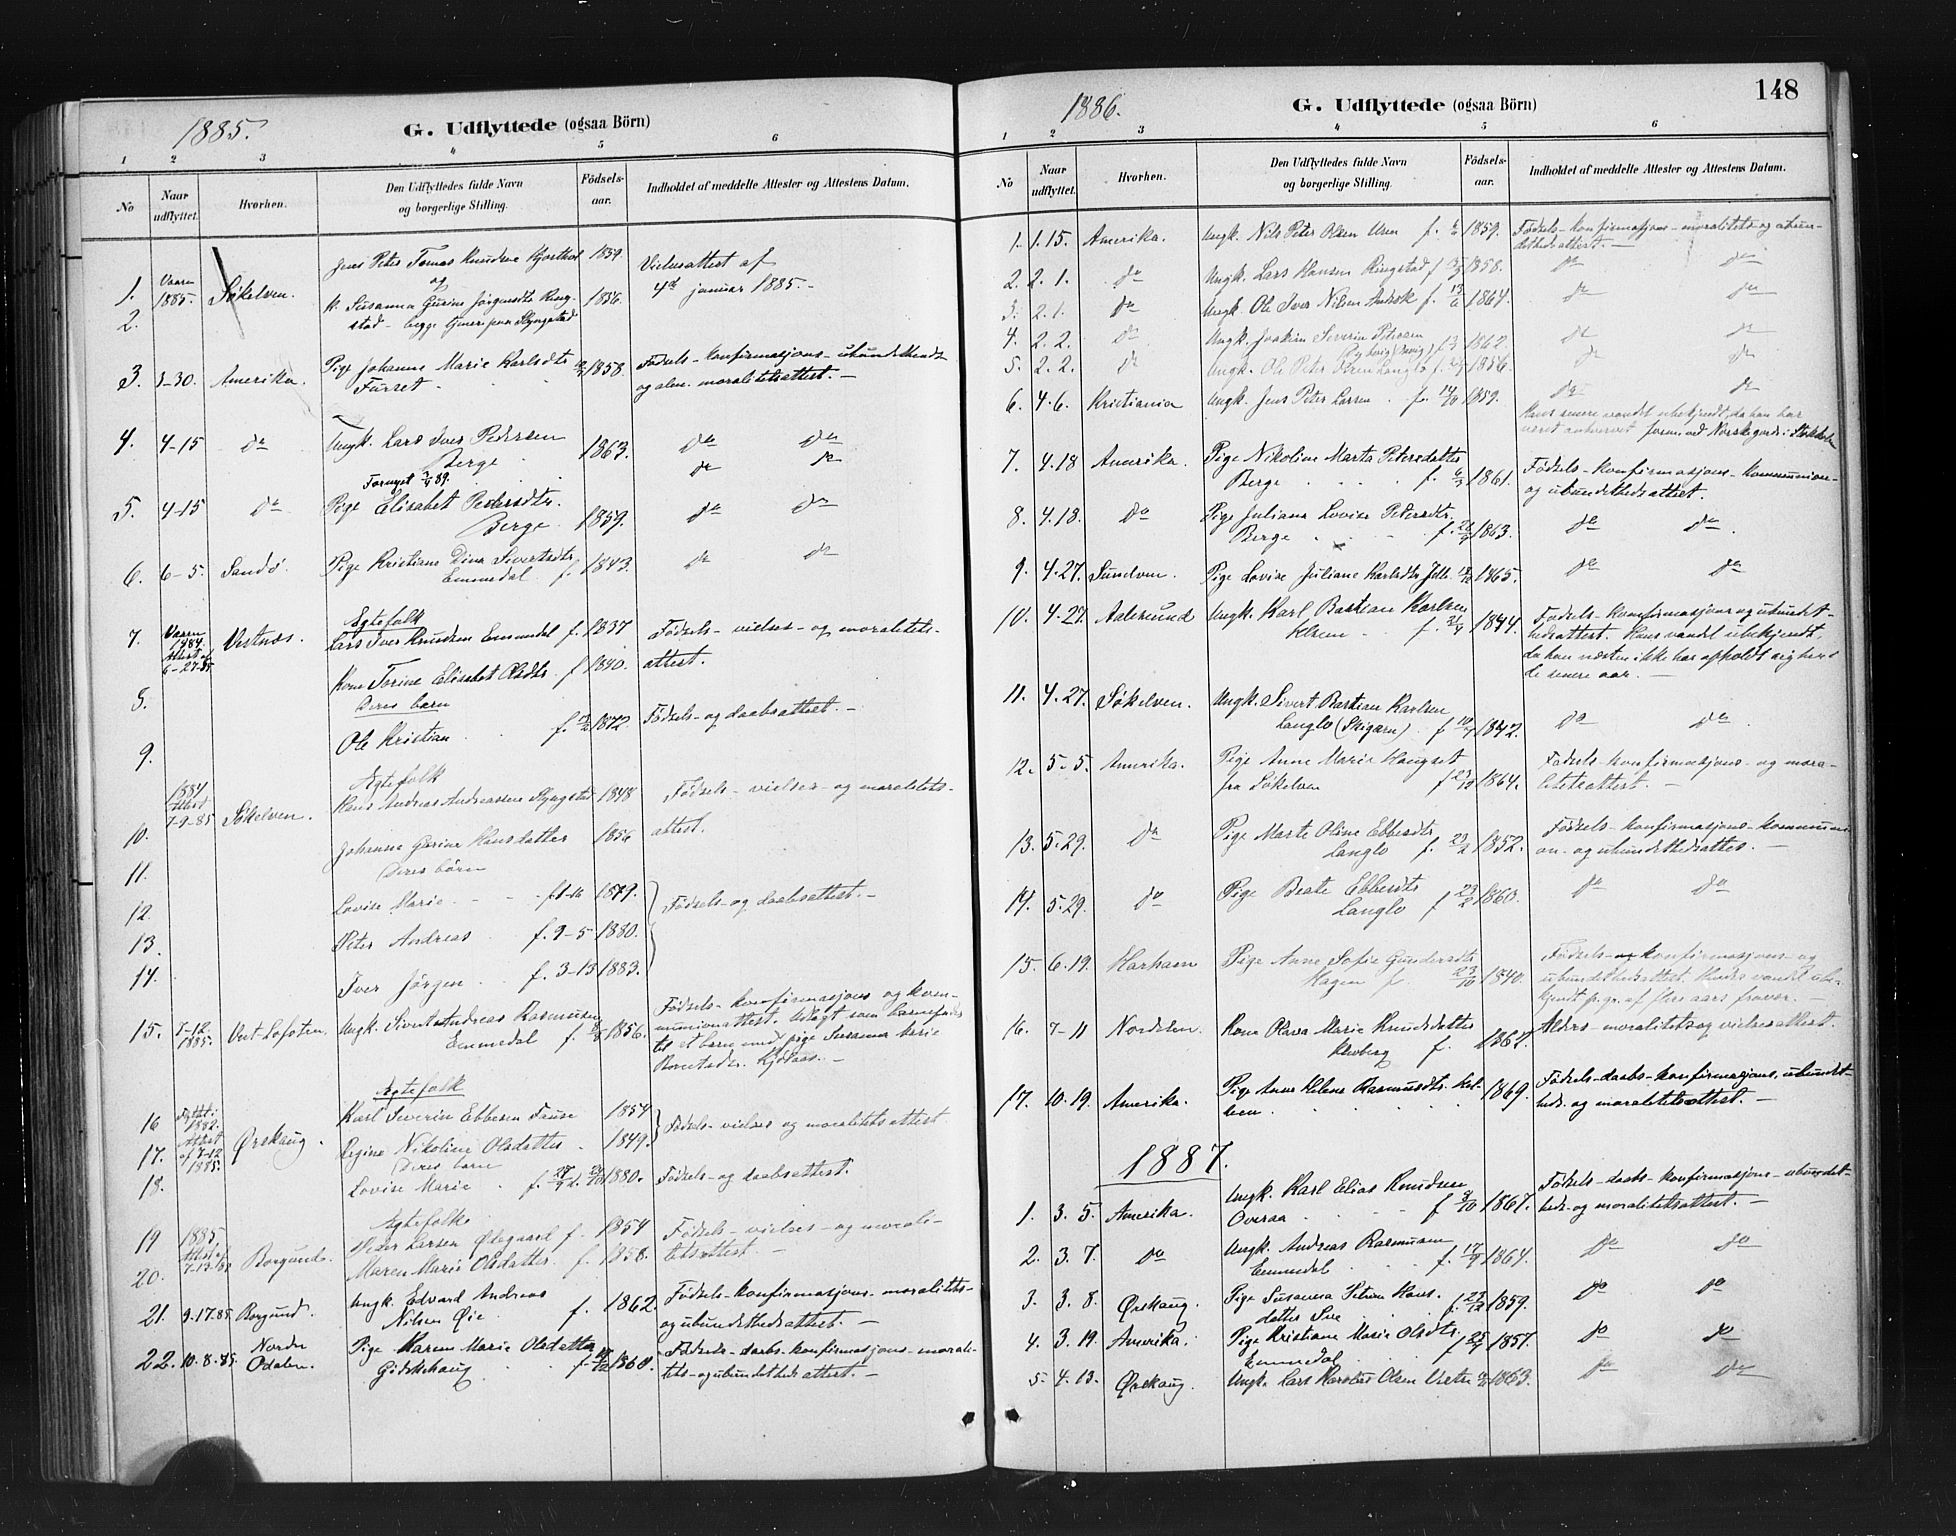 1885.
G. Udflyttede (ogsaa Börn)
1 2 3 4 5 6
No
Naar udflyttet.
Hvorhen.
Den Udflyttedes fulde Navn og borgerlige Stilling.
Födsels-aar.
Indholdet af meddelte Attester og Attestens Datum.
Jens Peter Tomas Knudsen 1859 Vielsesattest af
og
1. Vaaren 1885. Søkelven. 4de januar 1885.-
2. k. Susanna Gurine Jørgensdtr Ring- 1856
stad - begge tjener paa Slyngstad
3. 3-30. Amerika. Pige Johanne Marie Karlsdtr 1858. Fødsels-konfirmasjons-ubundetheds-
Furset og alm. moralitetsattest.-
4. 4-15 do Ungk. Lars Iver Pedersen 1863. do do
Berge do do
Fornyet 89.
5. 4-15 do Pige Elisabet Pedersdtr. 1859. do do
Berge
6. 6-5. Sandø. Pige Kristiane Dina Sivertsdtr 1843. do do
Emmedal f.
Egtefolk
7. Vaaren 1884. Attest af 6-27-85 Vestnæs. Lars Iver Knudsen Emmedal f. 1837 Fødsels-vielses-og moralitets-
8. Kone Torine Elisabet Olsdtr f 1840. attest.
Deres barn
9. Ole Kristian f. 1872. Fødsels-og daabsattest.-
Egtefolk
10. 1884 Attest 7-9-85 Søkelven. Hans Andreas Andreassen Slyngstad 1848 Fødsels-vielses-og moralitets-
11. Johanne Gurine Hansdatter 1856 attest.
Deres børn
12. Lovise Marie 1879. Fødsels-og daabsattest.-
13. Peter Andreas f. 9-5 1880.
14. Iver Jørgen f. 3-13 1883.
15. 1885. Vest-Lofoten. Ungk. Sivert Andreas Rasmussen 1856. Fødsels-konfirmasjons og kom-
Emmedal f. munionattest. Udlagt som barnefader
til et barn med pige Susanna Marie
Egtefolk
16 1882. Karl Severin Ebbesen Fause 1854 Fødsels-vielses og moralitetsattest
17. Attest af 7-12 1885. Ørskaug. Regine Nikoline Olsdatter 1849.
Deres barn
18. Lovise Marie f. 1880. Fødsels-og daabsattest.
Egtefolk
19 1885. Attest af Borgund. Peder Larsen Ødegaard f. 1854 Fødsels-vielses-og morali-
20. Maren Marie Olsdatter f. 1858. tetsattest.-
21. 9-17-85 Borgund. Ungk. Edvard Andreas 1862 Fødsels-konfirmasjons-moralitets-
Nilsen Øie f. og ubundethedsattest.-
22. 10-8-85. Nordre Odalen. Pige Karen Marie Olsdatter 1860. Fødsels-daabs-konfirmasjons-morali-
Gidskhaug tets-og ubundethedsattest.-
148
1886.
G. Udflyttede (ogsaa Börn)
1 2 3 4 5 6
No
Naar udflyttet.
Hvorhen.
Den Udflyttedes fulde Navn og borgerlige Stilling.
Födsels-aar.
Indholdet af meddelte Attester og Attestens Datum.
1. 1.15. Amerika. Ungk. Nils Peter Olsen Uren f. 1859. Fødsels-konfirmasjons-moralitets-og ubun-
dethedsattest.-
2. 2.1. do Ungk. Lars Hansen Ringstad f 1858. do do
3. 2.1. do Ungk. Ole Iver Nilsen f. 13/6 1864. do do
4. 2.2. do Ungk. Joakim Severin Petersen 1862. do do
5. 2.2. do Ungk. Ole Peter Langlo f. 1856. do do
6. 4.6. Kristiania Ungk. Jens Peter Larsen f. 14/10 1859. do do
Hans senere vandel ubekjendt, da han har
været
7. 4.18 Amerika. Pige Nikoline Marta Petersdatter Fødsels-konfirmasjons-kommunion-
Berge f. 1861. og ubundethedsattest.
8. 4.18. do Pige Juliane Lovise Petersdtr. do do
Berge f. 1863.
9. 4.27. Sundven. Pige Lovise Juliane Karlsdtr 1865. do do
10. 4.27. Aalesund Ungk. Karl Bastian Karlsen 1844. Fødsels-konfirmasjons og ubundet-
f. hedsattest. Hans vandel ubekjendt,
da han næsten ikke har opholdt sig her
de senere aar.-
11. 4.27. Søkelven. Ungk. Sivert Bastian Karlsen
Langlo (Skigarn) f 1842. do do
12. 5-5. Amerika. Pige Anne Marie Haugset Fødsels-konfirmasjons-og mora-
fra Søkelven f 1864. litetsattest.-
13. 5.29. do Pige Marte Oline Ebbesdtr Fødsels-konfirmasjons-kommuni-
Langlo f. 23/2 1852. on-og ubundethedsattest.-
14. 5.29. do Pige Beate Ebbesdtr 1860. do do
Langlo f
15. 6.19. Harham Pige Anne Sofie Gundersdtr Fødsels-konfirmasjons-og
Hagen f 23/10 1840. ubundethedsattest. Hendes vandel ube-
kjendt p.gr. af flere aars fravær.-
16. 7-11 Nordalen. Kone Olava Marie Knudsdatter 1867. Alders-moralitets og vielsesattest.
f.
17. 10.19. Amerika. Pige Anne Helene Rasmusdtr. 1869. Fødsels-daabs-konfirmasjons, ubundet-
heds-og moralitetsattest.-
1887.
1. 3.5. Amerika. Ungk. Karl Elias Knudsen Fødsels-daabs-konfirmasjons-ubundet-
Overaa f 3/10 1867. heds-og moralitetsattest.-
2. 3.7. do Ungk. Andreas Rasmussen
Emmedal f. 17/9 1864. do do
3. 3.8. Ørskaug. Pige Susanna Petrine Hans-
datter f. 23/12 1859. do do
4. 3.19. Amerika. Pige Kristiane Marie Olsdtr. f 25 1857. do do
Emmedal
5. 4.13. Ørskaug. Ungk. Lars Karolus Olsen 1863. do do